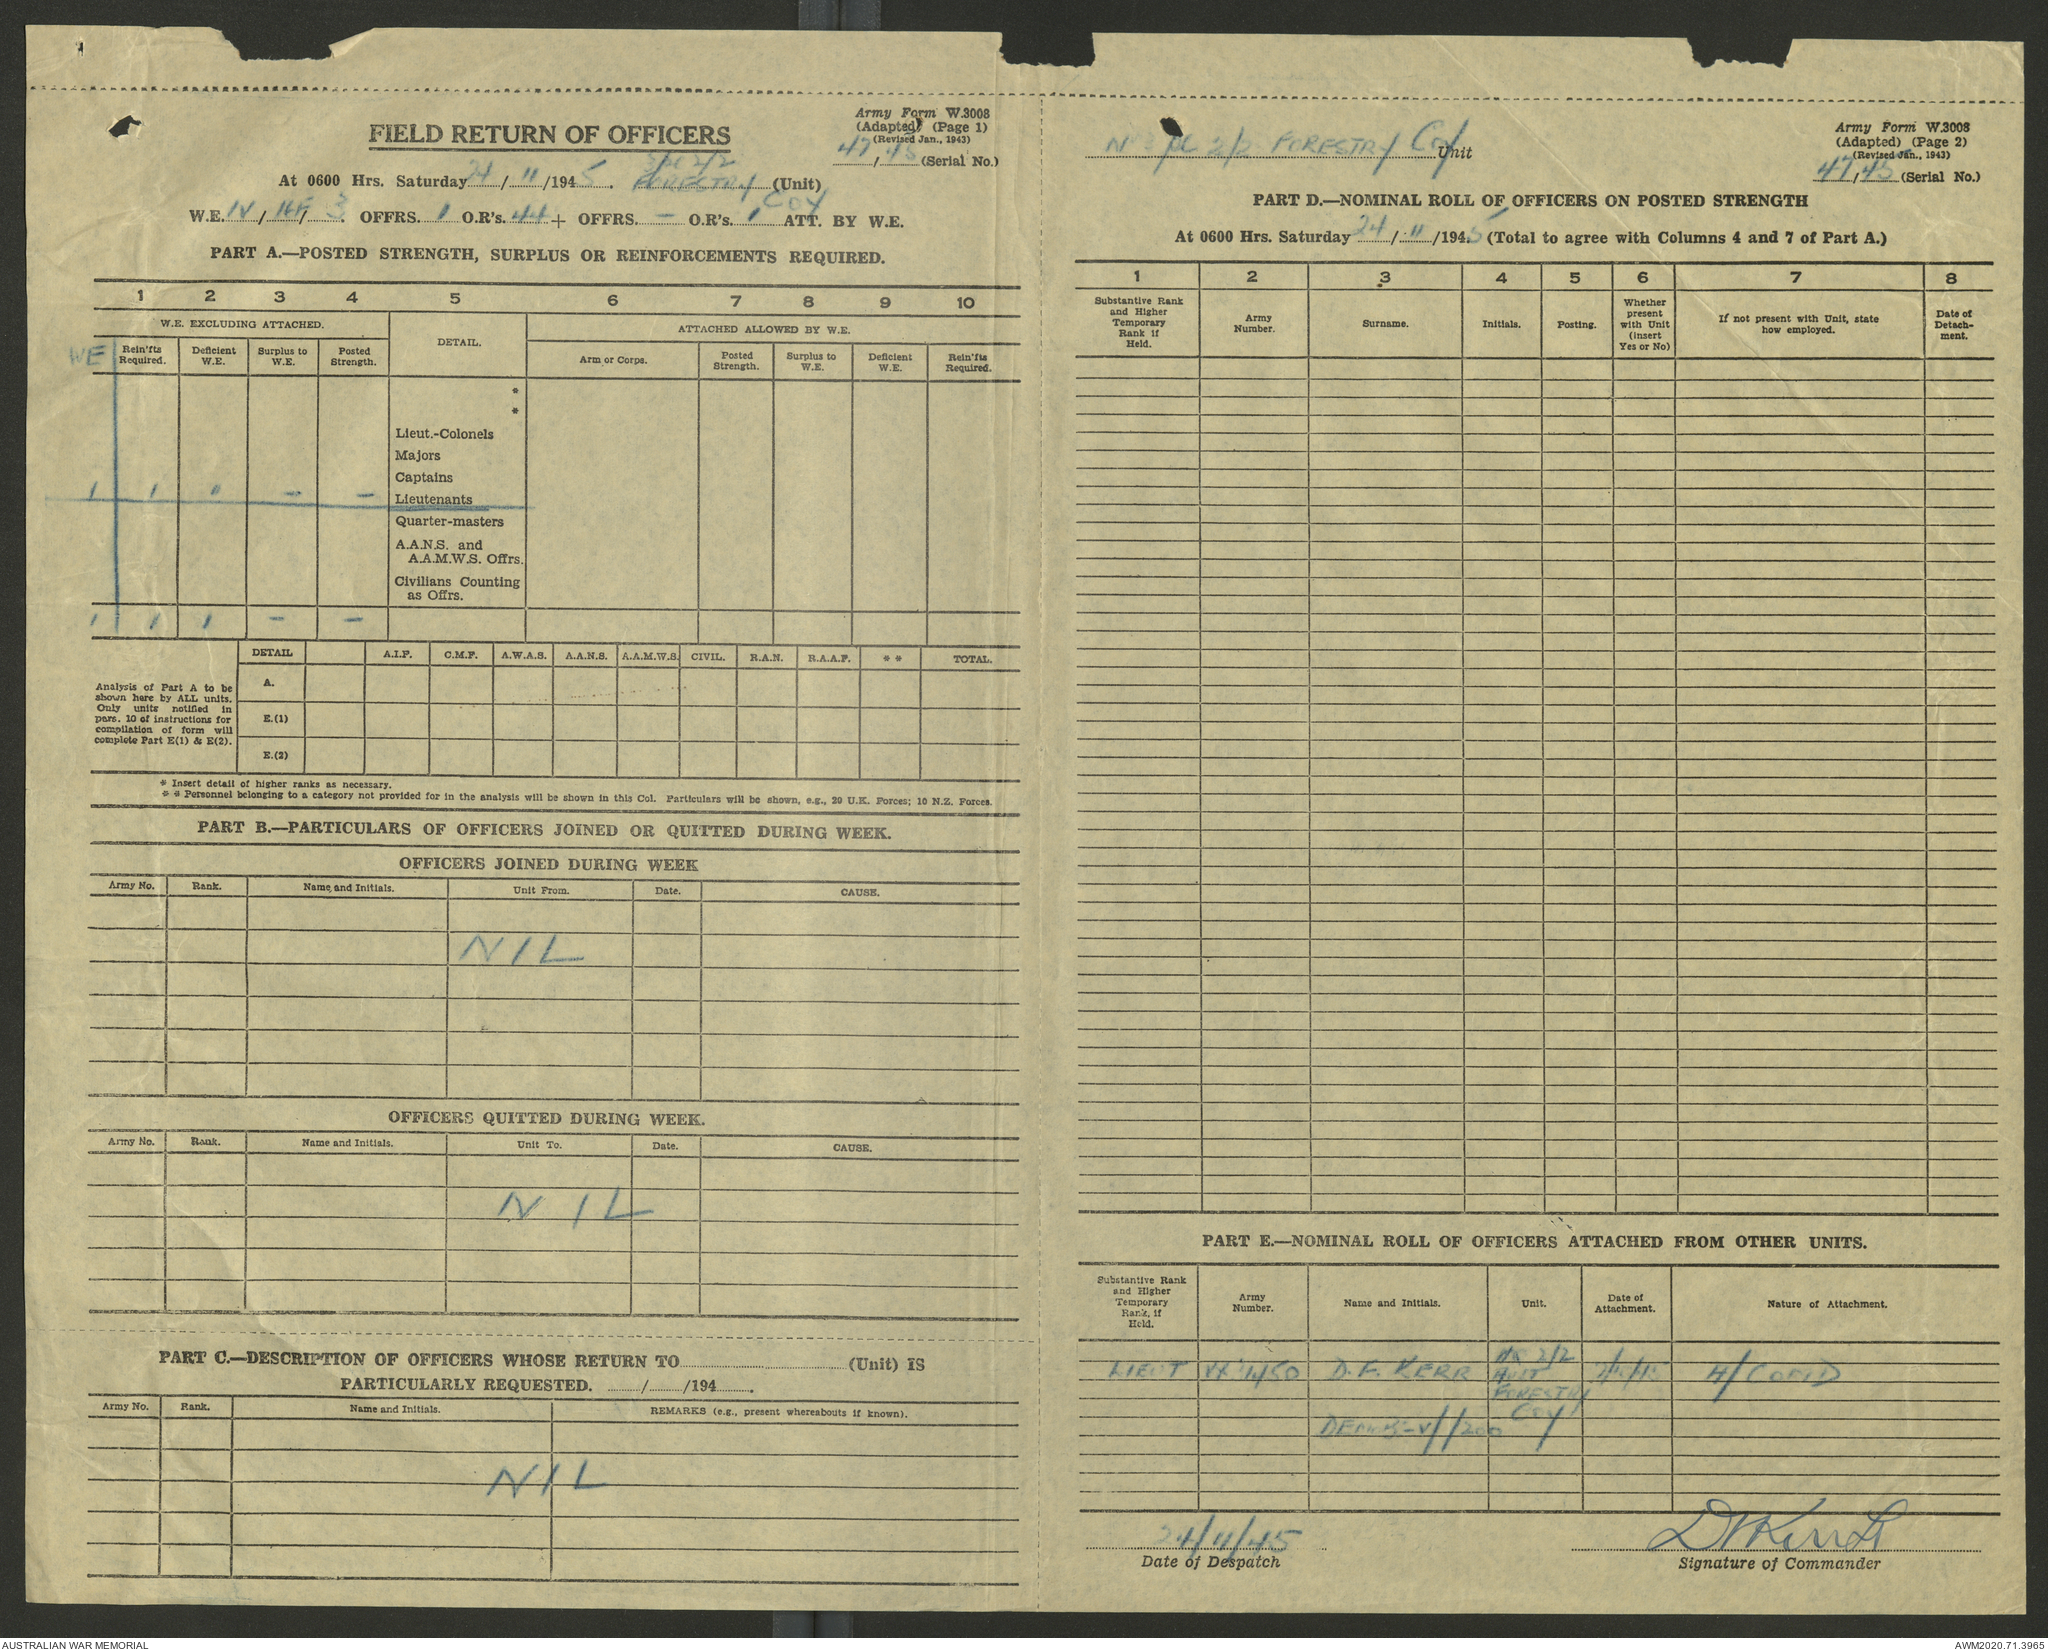 Army Form W.3008
(Adapted) (Page 1)
(Revised Jan., 1943)
47/45 (Serial No.)
FIELD RETURN OF OFFICERS
At 0600 Hrs. Saturday 24/11/1945. 2/2 FORESTRY COY (Unit)
W.E. IV/ / 3 OFFRS. 1 O.R's. 44 + OFFRS. - O.R's. 1 ATT. BY W.E.
PART A.—POSTED STRENGTH, SURPLUS OR REINFORCEMENTS REQUIRED.
1 2 3 4 5 6 7 8 9 10
W.E. EXCLUDING ATTACHED. DETAIL. ATTACHED ALLOWED BY W.E.
WE Rein'fts Required. Deficient W.E. Surplus to W.E. Posted Strength. Arm or Corps. Posted Strength. Surplus to W.E. Deficient W.E. Rein'fts Required.
*
*
Lieut.-Colonels
Majors
Captains
1 1 1 - - Lieutenants
Quarter-masters
A.A.N.S. and
A.A.M.W.S. Offrs.
Civilians Counting
as Offrs.
1 1 1 - -
DETAIL A.I.F. C.M.F. A.W.A.S. A.A.N.S. A.A.M.W.S. CIVIL. R.A.N. R.A.A.F. * * TOTAL.
Analysis of Part A to be
shown here by ALL units.
Only units notified in
para. 10 of instructions for
compilation of form will
complete Part E(1) & E(2).
A.
E.(1)
E.(2)
* Insert detail of higher ranks as necessary.
* * Personnel belonging to a category not provided for in the analysis will be shown in this Col. Particulars will be shown, e.g., 20 U.K. Forces; 10 N.Z. Forces.
PART B.—PARTICULARS OF OFFICERS JOINED OR QUITTED DURING WEEK.
OFFICERS JOINED DURING WEEK
Army No. Rank. Name and Initials. Unit From. Date. CAUSE.
NIL
OFFICERS QUITTED DURING WEEK.
Army No. Rank. Name and Initials. Unit To. Date. CAUSE.
NIL
PART C.—DESCRIPTION OF OFFICERS WHOSE RETURN TO (Unit) IS
PARTICULARLY REQUESTED. / /194 .
Army No. Rank. Name and Initials. REMARKS (e.g., present whereabouts if known).
NIL
Army Form W.3008
(Adapted) (Page 2)
(Revised Jan., 1943)
47/45 (Serial No.)
2/2 FORESTRY Coy Unit
PART D.—NOMINAL ROLL OF OFFICERS ON POSTED STRENGTH
At 0600 Hrs. Saturday 24/11/1945 (Total to agree with Columns 4 and 7 of Part A.)
1 2 3 4 5 6 7 8
Substantive Rank and Higher Temporary Rank if Held. Army Number. Surname. Initials. Posting. Whether present with Unit (insert Yes or No) If not present with Unit, state how employed. Date of Detachment.
PART E.—NOMINAL ROLL OF OFFICERS ATTACHED FROM OTHER UNITS.
Substantive Rank and Higher Temporary Rank, if Held. Army Number. Name and Initials. Unit. Date of Attachment. Nature of Attachment.
LIEUT D.F. KERR 2/2 AUST FORESTRY COY A/COMD
24/11/45
Date of Despatch
DF Kerr Lt
Signature of Commander
AUSTRALIAN WAR MEMORIAL
AWM2020.71.3965